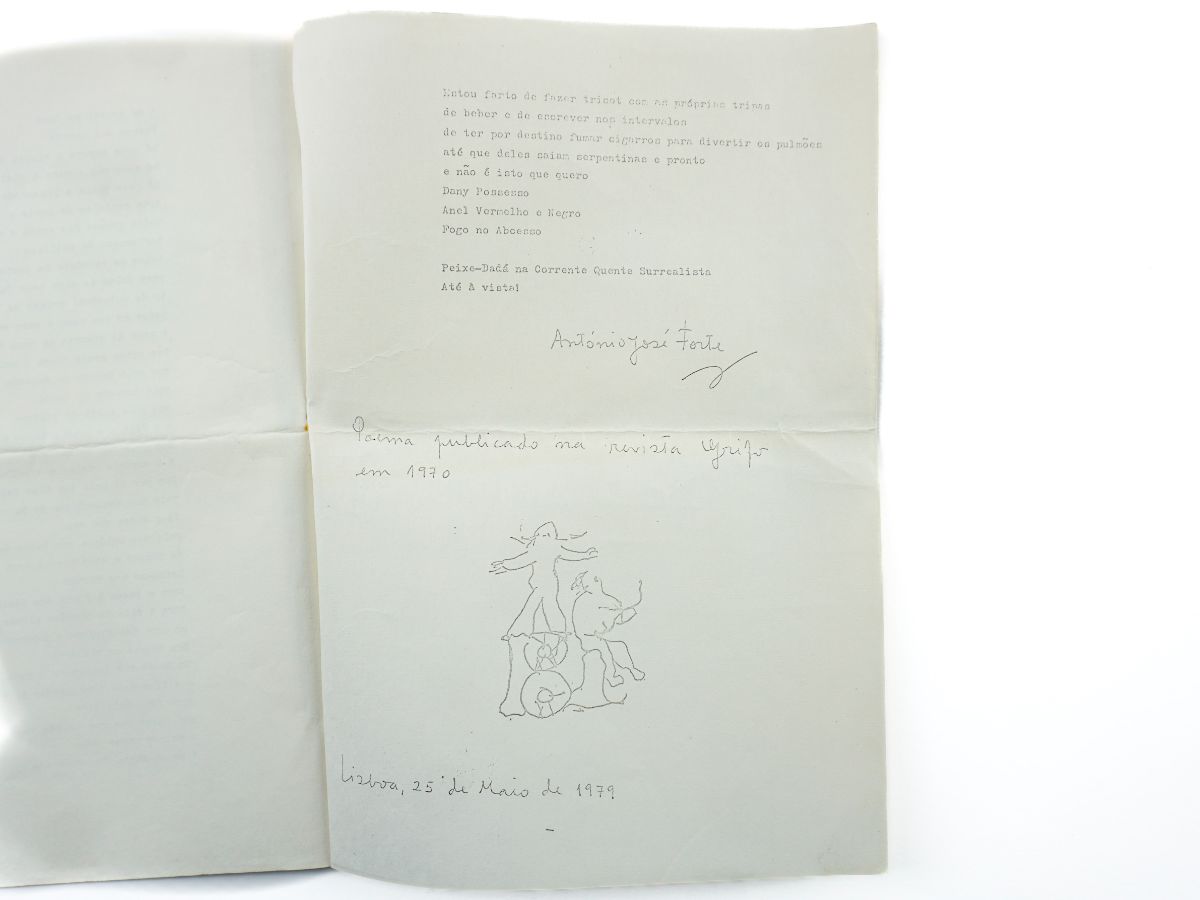 Estou farto de fazer tricot com as próprias tripas
de beber e de escrever nos intervalos
de ter por destino fumar cigarros para divertir os pulmões
até que deles saiam serpentinas e pronto
e não é isto que quero
Dany Possesso
Anel Vermelho e Negro
Fogo no Abcesso
Peixe-Dadá na Corrente Quente Surrealista
Até à vista!
António José Forte
Poema publicado na revista Grifo
em 1970
Lisboa, 25 de Maio de 1979